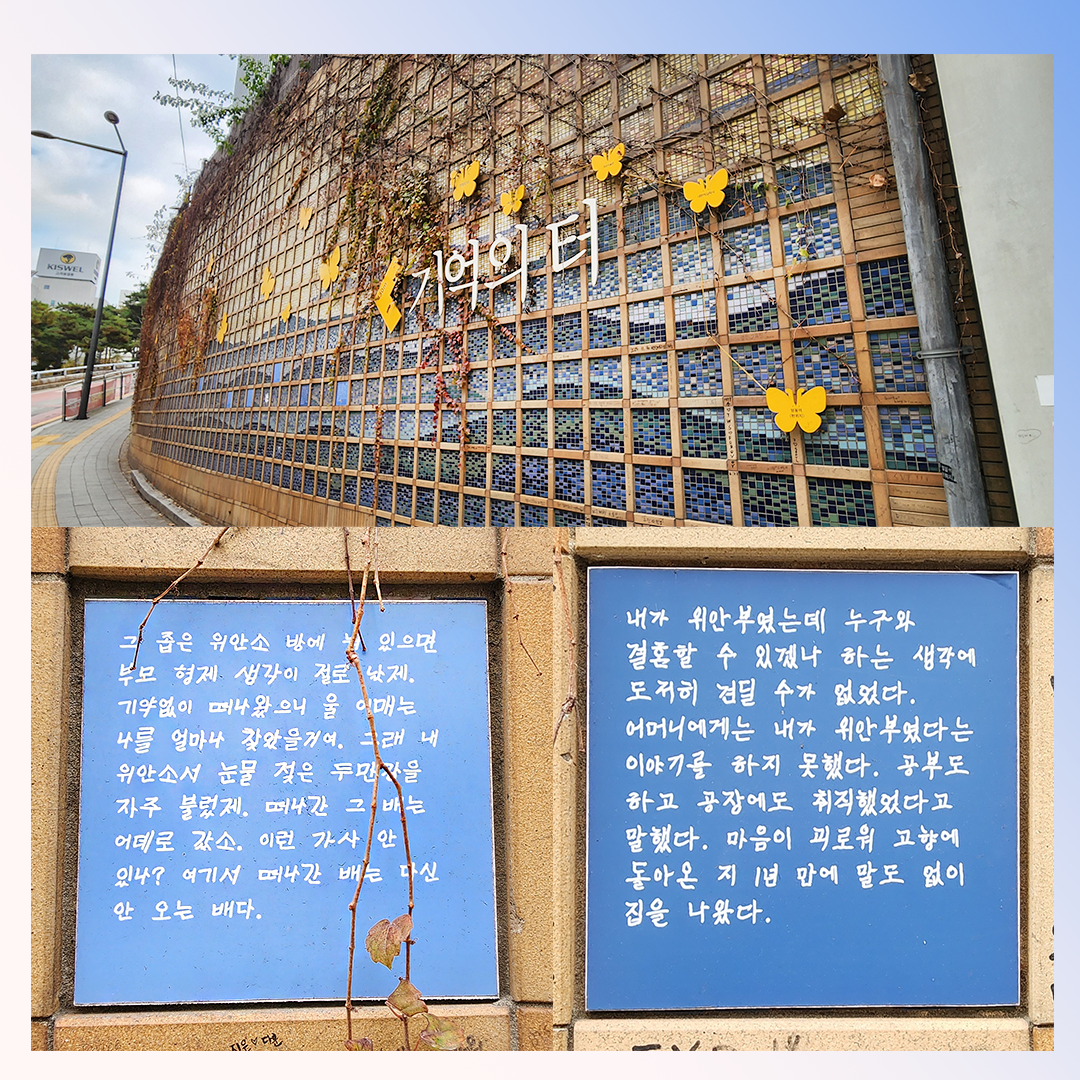 KISWEL
기억의 터
그 좁은 위안소 방에 있으면
부모 형제 생각이 절로 났제.
기약없이 떠나왔으니 울 어매는
나를 얼마나 찾았을거여. 그래 내
위안소서 눈물 젖은 두만강을
자주 불렀제. 떠나간 그 배는
어데로 갔소. 이런 가사 안
있나? 여기서 떠나간 배는 다신
안 오는 배다.
내가 위안부였는데 누구와
결혼할 수 있겠나 하는 생각에
도저히 견딜 수가 없었다.
어머니에게는 내가 위안부였다는
이야기를 하지 못했다. 공부도
하고 공장에도 취직했었다고
말했다. 마음이 괴로워 고향에
돌아온 지 1년 만에 말도 없이
집을 나왔다.